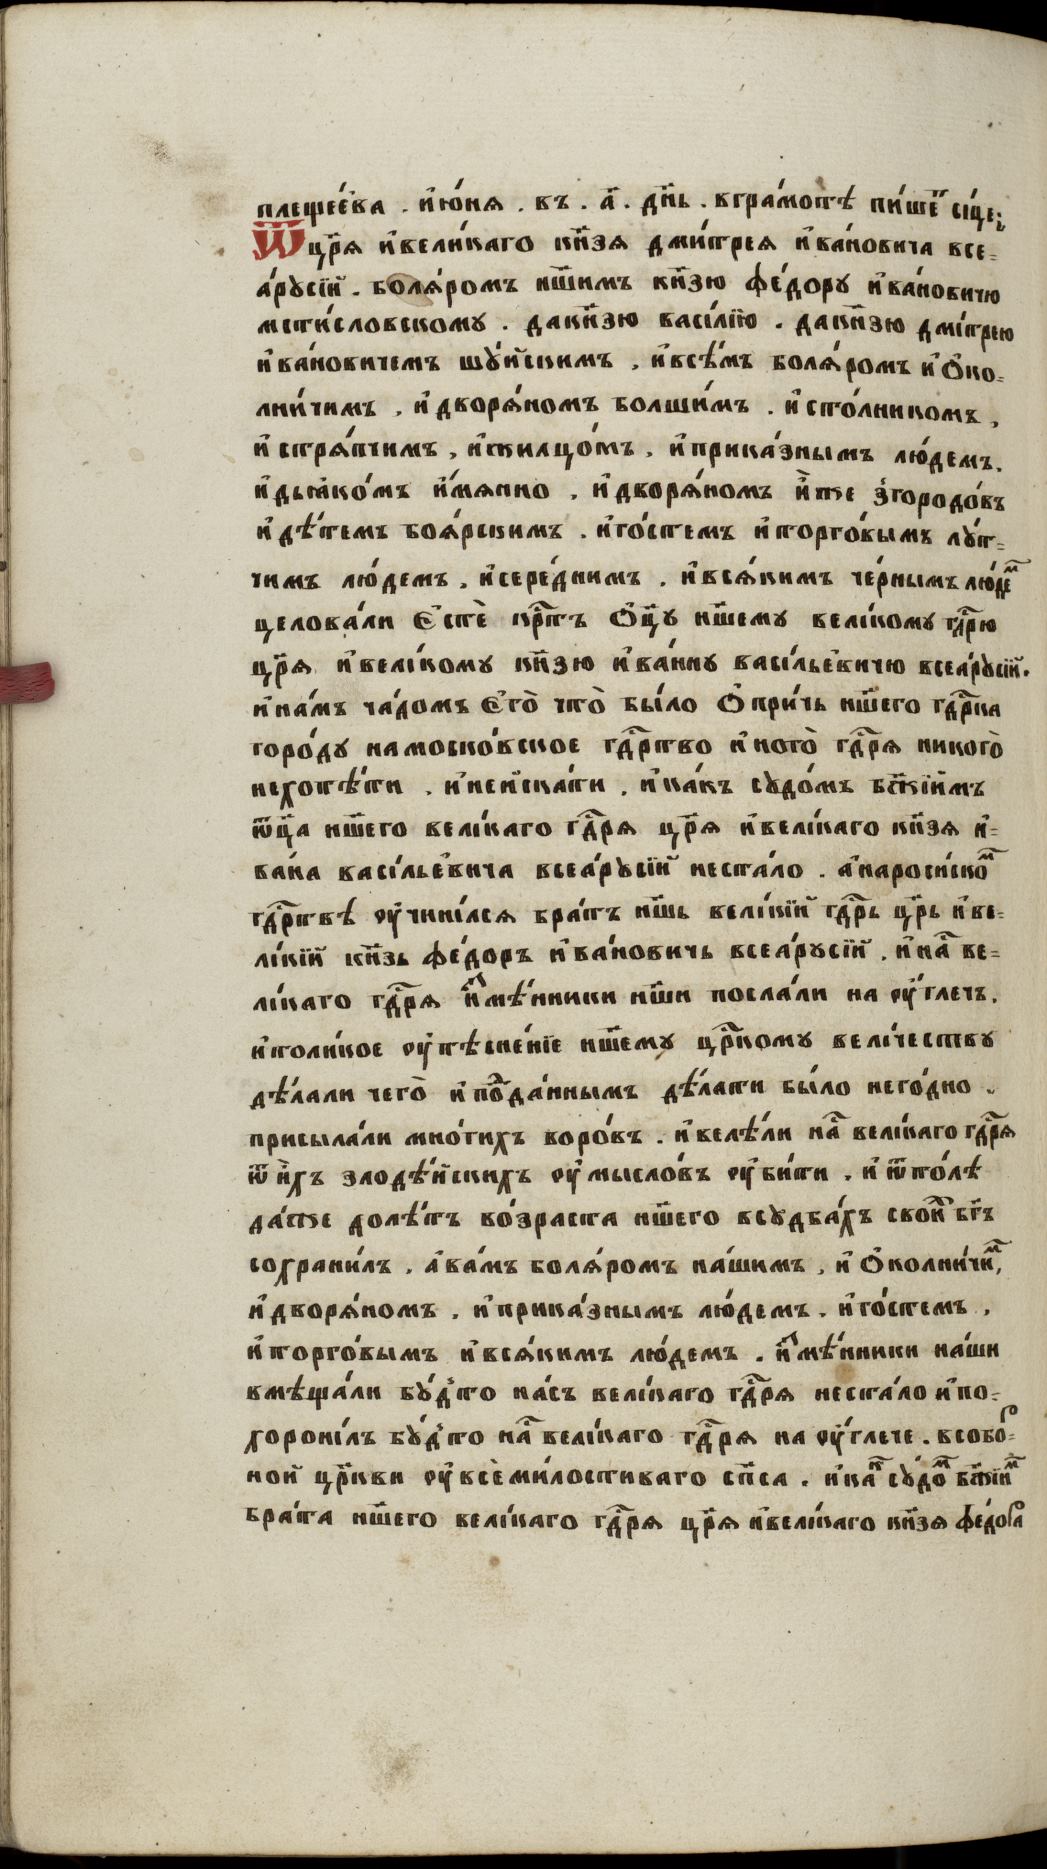 плещее́ва . ию́нѧ . въ . а҃ . дн҃ь . вгра́мотѣ пи́шеⷮ сі́це:
Ѿ цр҃ѧ ивели́каго кн҃зѧ дми́трея ива́новича все-
а́рꙋсїй . болѧ́ромъ нш҃имъ кн҃зю фе́дорꙋ ива́новичю
мсти́словскомꙋ . дакн҃зю васі́лїю . дакн҃зю дмі́трею
ива́новичемъ шꙋ́йскимъ , ивсѣ́мъ болѧ́ромъ и ѻко-
лни́чимъ , и дворѧ́номъ болши́мъ . и сто́лникомъ ,
и стрѧ́пчимъ , ижилцо́мъ , и прика́знымъ лю́демъ .
и дьѧко́мъ и́мянно , и дворѧ́номъ и҆̀же з̾городо́въ
и дѣ́темъ боѧ́рскимъ . иго́стемъ и торго́вымъ лꙋ́т-
чимъ лю́демъ , исере́днимъ , ивсѧ́кимъ че́рнымъ лю́деⷨ
целова́ли Єстѐ крⷭ҇тъ Ѻц҃ꙋ нш҃емꙋ велі́комꙋ гдⷭ҇рю
цр҃ѧ и велі́комꙋ кн҃зю ива́ннꙋ васі́льевичю всеа́рꙋсїй .
и на́мъ ча́домъ Єгѡ̀ что̀ бы́ло Ѻпри́чь нш҃его гдⷭ҇рка
горо́дꙋ намоско́вское гдⷭ҇рптво и ного̀ гдⷭ҇рѧ никого̀
нехотѣ́ти , и неиска́ти , и ка́къ сꙋдо́мъ бж҃їимъ
ѿц҃а нш҃его велі́каго гдⷭ҇рѧ цр҃ѧ ивелі́каго кн҃зѧ и-
ва́на васі́льевича всеа́рꙋсїй неста́ло . анароси́скоⷨ
гдⷭ҇рптвѣ ᲂучинілсѧ бра́тъ нш҃ь велі́кїй гдⷭ҇рь цр҃ь и ве-
лі́кїй кн҃зь фе́доръ ива́новичь всеа́рꙋсїй . и наⷭ҇ ве-
лі́каго гдⷭ҇рѧ иⷥмѣ́нники нш҃и посла́ли на ᲂу́глечь .
и толи́кое ᲂутѣсне́нїе нш҃емꙋ црⷭ҇комꙋ вели́чествꙋ
дѣ́лали чего̀ и поⷣда́ннымъ дѣ́лати бы́ло него́дно .
присыла́ли мно́гихъ воро́въ . ивелѣ́ли наⷭ҇ велі́каго гдⷭ҇рѧ
ѿ и҆̀хъ злодѣ́йскихъ ᲂумысло́въ ᲂуби́ти . и ѿто́лѣ
да́же долѣ́тъ во́зраста нш҃его всꙋдба́хъ своиⷯ бг҃ъ
сохрани́лъ . а ва́мъ болѧ́ромъ на́шимъ , и Ѻколни́чиⷨ ,
и дворѧ́номъ . и прика́знымъ лю́демъ . и го́стемъ ,
и торго́вымъ ивсѧ́кимъ лю́демъ . иⷥмѣ́нники на́ши
вмѣща́ли бꙋ́дто на́съ велі́каго гдⷭ҇рѧ неста́ло и по-
хорони́лъ бꙋ́дто наⷭ҇ велі́каго гдⷭ҇рѧ на ᲂу́глече . всобоⷬ-
ной црⷭ҇кви ᲂувсѐми́лостиваго сп҃са . и каⷦ сꙋдоⷨ бж҃їиⷨ
бра́та нш҃его велі́каго гдⷭ҇рѧ цр҃ѧ ивелі́каго кн҃зѧ фе́доⷬа